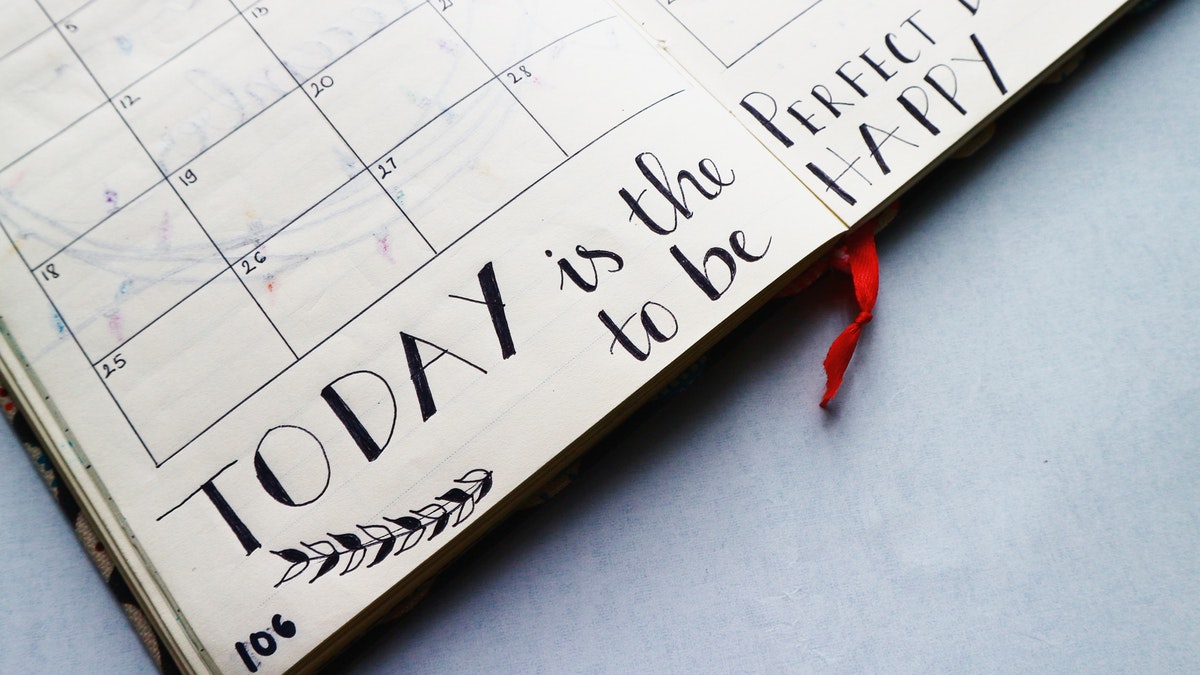 5
12 13
18 19 20
25 26 27 28
TODAY is the
to be
PERFECT
HAPPY
106